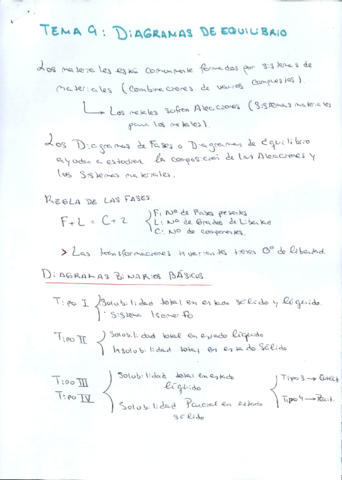 TEMA 9: DIAGRAMAS DE EQUILIBRIO
Los materiales están comunmente formados por sistemas de
materiales (combinaciones de varios compuestos).
Los metales sufren Aleaciones (Sistemas materiales
para los metales).
Los Diagramas de Fases o Diagramas de Equilibrio
ayudan a estudiar la composición de las Aleaciones y
los Sistemas materiales.
REGLA DE LAS FASES
F+L = C+2
F: Nº de Fases presentes
L: Nº de Grados de Libertad
C: Nº de componentes.
> Las transformaciones invariantes tienen 0º de libertad.
DIAGRAMAS BINARIOS BÁSICOS
TIPO I
Solubilidad total en estado sólido y líquido.
· Sistema Isomorfo
TIPO II
Solubilidad total en estado líquido
Insolubilidad total en estado sólido
TIPO III
TIPO IV
Solubilidad total en estado
líquido
Solubilidad Parcial en estado
sólido
Tipo 3 →
Tipo 4 →